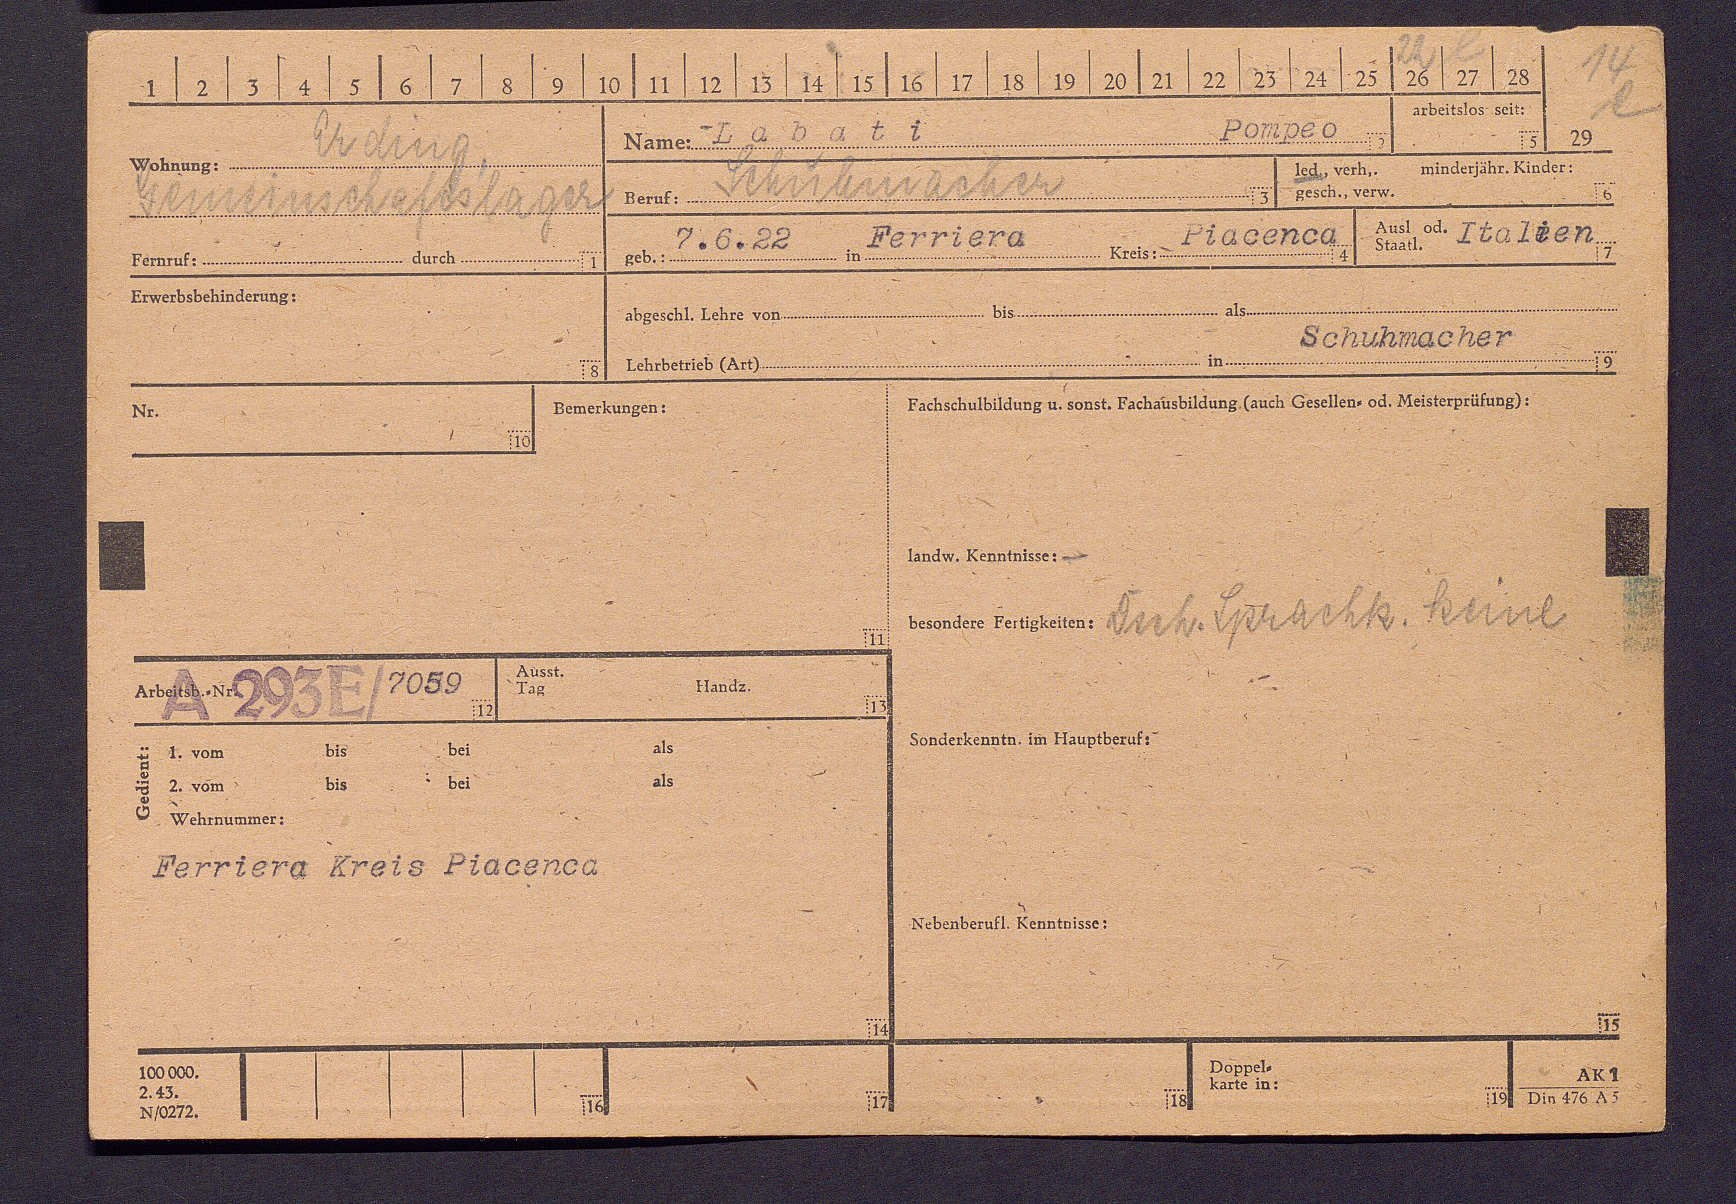 22 14
1 2 3 4 5 6 7 8 9 10 11 12 13 14 15 16 17 18 19 20 21 22 23 24 25 26 27 28
arbeitslos seit:
5 29
Erding,
Wohnung:
Gemeinschaftslager
Fernruf: durch 1
Name: -L a b a t i Pompeo 2
Beruf: Schuhmacher 3
led., verh., minderjähr. Kinder:
gesch., verw. 6
geb.: 7.6.22 in Ferriera Kreis: Piacenca 4
Ausl od. Staatl. Italien 7
Erwerbsbehinderung:
8
abgeschl. Lehre von bis als
Schuhmacher
Lehrbetrieb (Art) in 9
Nr. 10
Bemerkungen:
11
Fachschulbildung u. sonst. Fachausbildung (auch Gesellen- od. Meisterprüfung):
landw. Kenntnisse: —
besondere Fertigkeiten: Dsch. Sprachk. keine
Sonderkenntn. im Hauptberuf:
Nebenberufl. Kenntnisse:
15
Arbeitsb.-Nr. A 293E/7059 12
Ausst. Tag Handz. 13
Gedient:
1. vom bis bei als
2. vom bis bei als
Wehrnummer:
Ferriera Kreis Piacenca
14
100 000.
2. 43.
N/0272.
16 17 18
Doppel-
karte in: 19
AK 1
Din 476 A 5